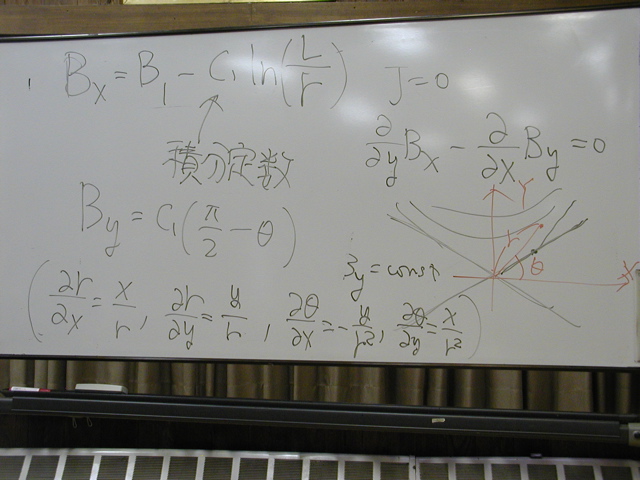 B_x = B_1 - C_1 ln(L/r) J=0
積分定数
∂/∂y B_x - ∂/∂x B_y = 0
B_y = C_1(π/2 - θ)
Y
r
θ
X
B_y = const
(∂r/∂x = x/r, ∂r/∂y = y/r, ∂θ/∂x = -y/r², ∂θ/∂y = x/r²)